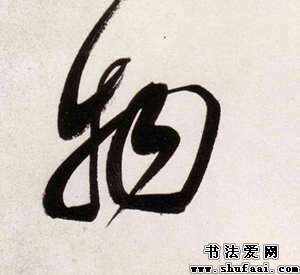 物
书法爱网
www.shufaai.com